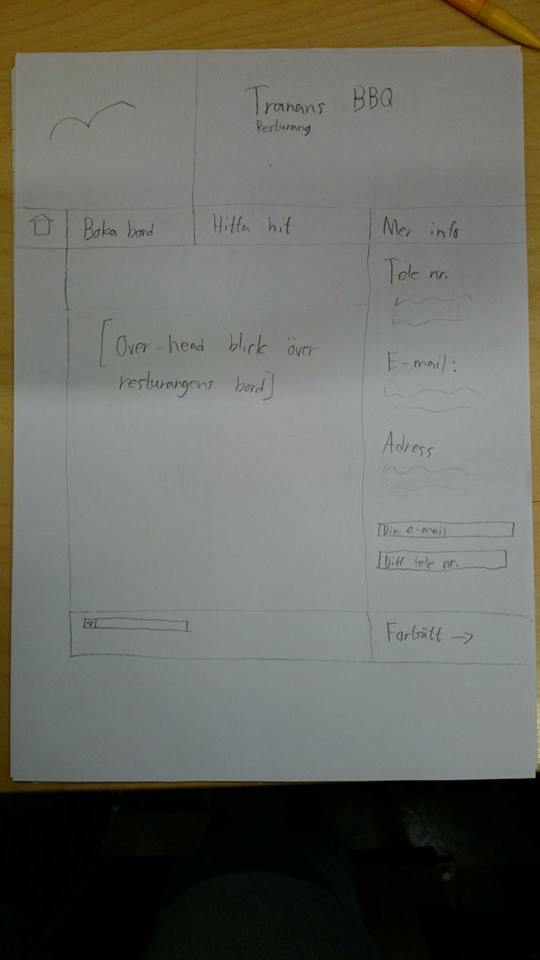 Tranans BBQ
Resturang
Boka bord
Hitta hit
Mer info
Tele nr.
[Over-head blick över
resturangens bord]
E-mail:
Adress
Din e-mail
Ditt tele nr.
Fortsätt →